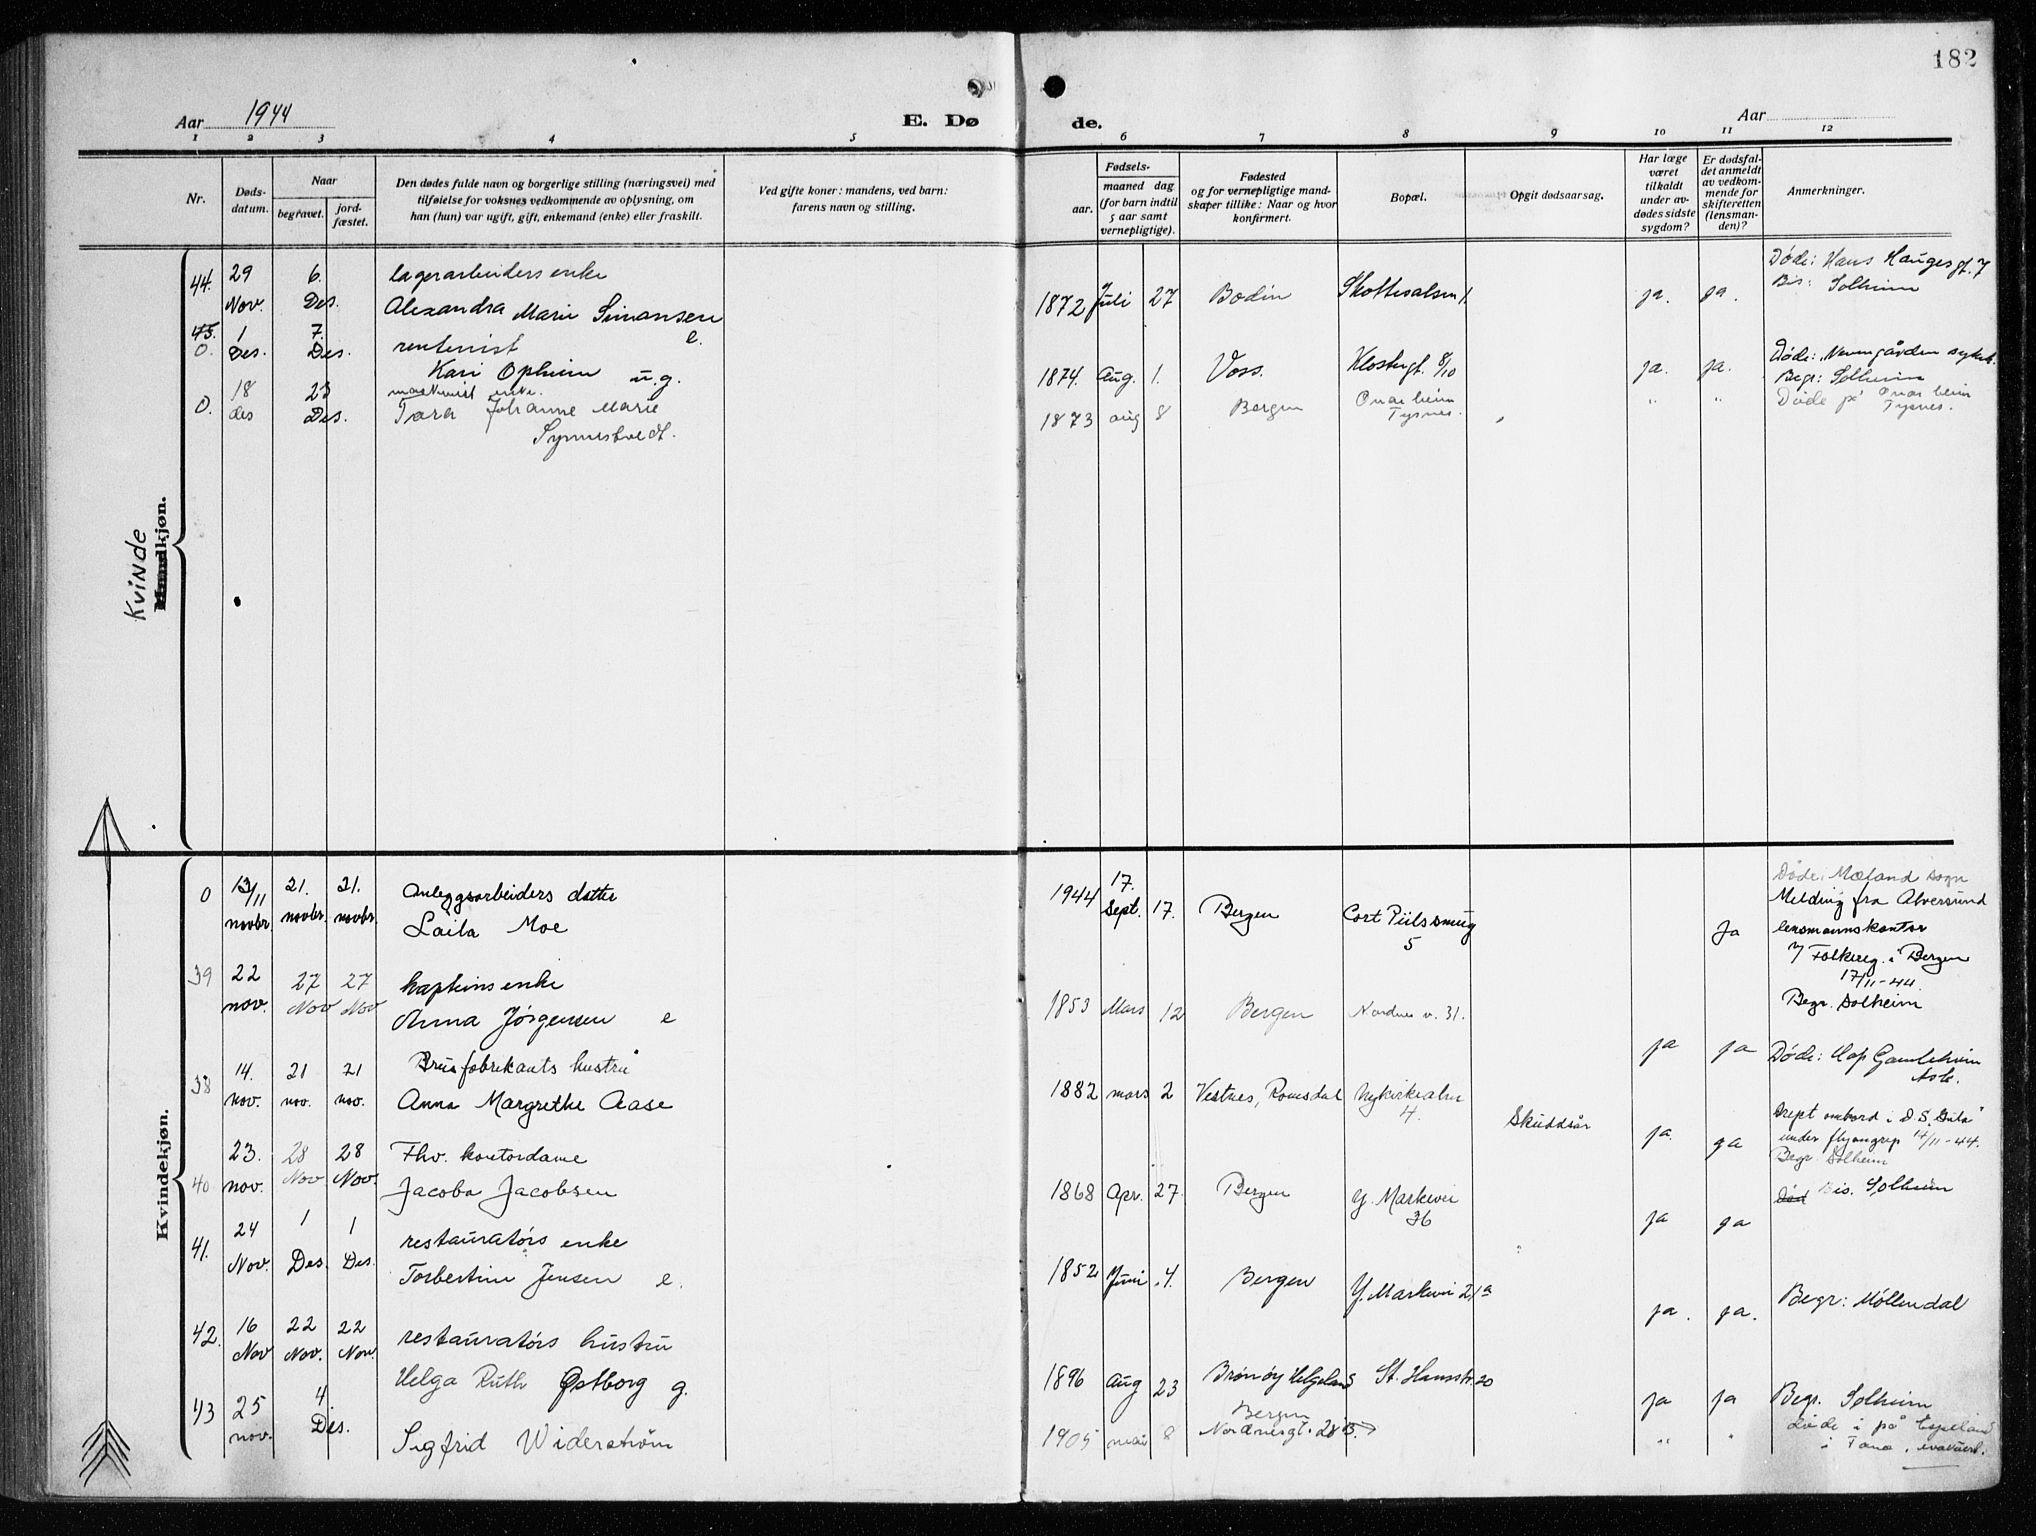 182
Aar 1944
E. Dø de.
Aar
1 2 3 4 5 6 7 8 9 10 11 12
Nr.
Døds-
datum.
Naar
begravet.
jord-
fæstet.
Den dødes fulde navn og borgerlige stilling (næringsvei) med
tilføielse for voksnes vedkommende av oplysning, om
han (hun) var ugift, gift, enkemand (enke) eller fraskilt.
Ved gifte koner: mandens, ved barn:
farens navn og stilling.
Fødsels-
aar.
maaned dag
(for barn indtil
5 aar samt
vernepligtige).
Fødested
og for vernepligtige mand-
skaper tillike: Naar og hvor
konfirmert.
Bopæl.
Opgit dødsaarsag.
Har læge
været
tilkaldt
under av-
dødes sidste
sygdom?
Er dødsfal-
det anmeldt
av vedkom-
mende for
skifteretten
(lensman-
den)?
Anmerkninger.
Kvinde
Mandkjøn.
44. 29 Nov. 6. Des.
lagerarbeiders enke
Alexandra Marie Simonsen e.
1872 Juli 27 Bodin ja. ja.
Døde: Hans Haugesgt. 7
Bis: Solheim
45. 0. 1 Des. 7. Des.
rentenist
Kari Opheim u.g.
1874. Aug. 1. Voss. Klostergt. 8/10 ja. ja.
Døde: Nevengården sykeh.
Begr: Solheim
0. 18 des 23 Des.
maskinist enke.
Tara Johanne Marie
Synnestvedt.
1873 aug 8 Bergen Onarheim
Tysnes. " "
Døde på Onarheim
Tysnes.
Kvindekjøn.
0 13/11 novbr. 21. novbr. 21. novbr.
Anleggsarbeiders datter
Laila Moe
1944 17. Sept. 17. Bergen Cort Piilssmug
5 Ja
Døde: Mæland sogn
Melding fra Alversund
lensmannskontor
v/ Folkereg. i Bergen
17/11-44.
Begr. Solheim
39 22 nov. 27 Nov 27 Nov
kapteins enke
Anna Jørgensen e
1853 Mars 12 Bergen Nordnes v. 31. ja ja
Døde: Hop Gamleheim
Ask.
38 14. nov. 21 nov. 21 nov.
Brusfabrikants hustru
Anna Margrethe Aase
1882 mars 2 Vestnes, Romsdal Nykirkealm
4. Skuddsår ja. ja
Drept ombord i D.S. "Gula"
under flyangrep 14/11-44.
Begr. Solheim
40 23. nov. 28 Nov 28 Nov.
Fhv. kontordame
Jacoba Jacobsen
1868 Apr. 27. Bergen Y. Markevei
36 ja ja
Død Bis. Solheim
41. 24 Nov. 1 Des. 1 Des.
restauratørs enke
Torbertine Jensen e.
1852 Juni 4. Bergen Y. Markevei 21a ja. ja.
Begr: Møllendal
42. 16 Nov 22 Nov. 22 Nov.
restauratørs hustru
Helga Ruth Østborg g.
1896 Aug 23 Brønøy Helgeland St. Hansstr. 20 ja ja
Begr. Solheim
43 25 nov. 4 Des.
Sigfrid Widerstrøm
1905 mai 8 Bergen
Nordnesgt. 28 B. " "
døde i på Espeland
i Fana, evakuert.